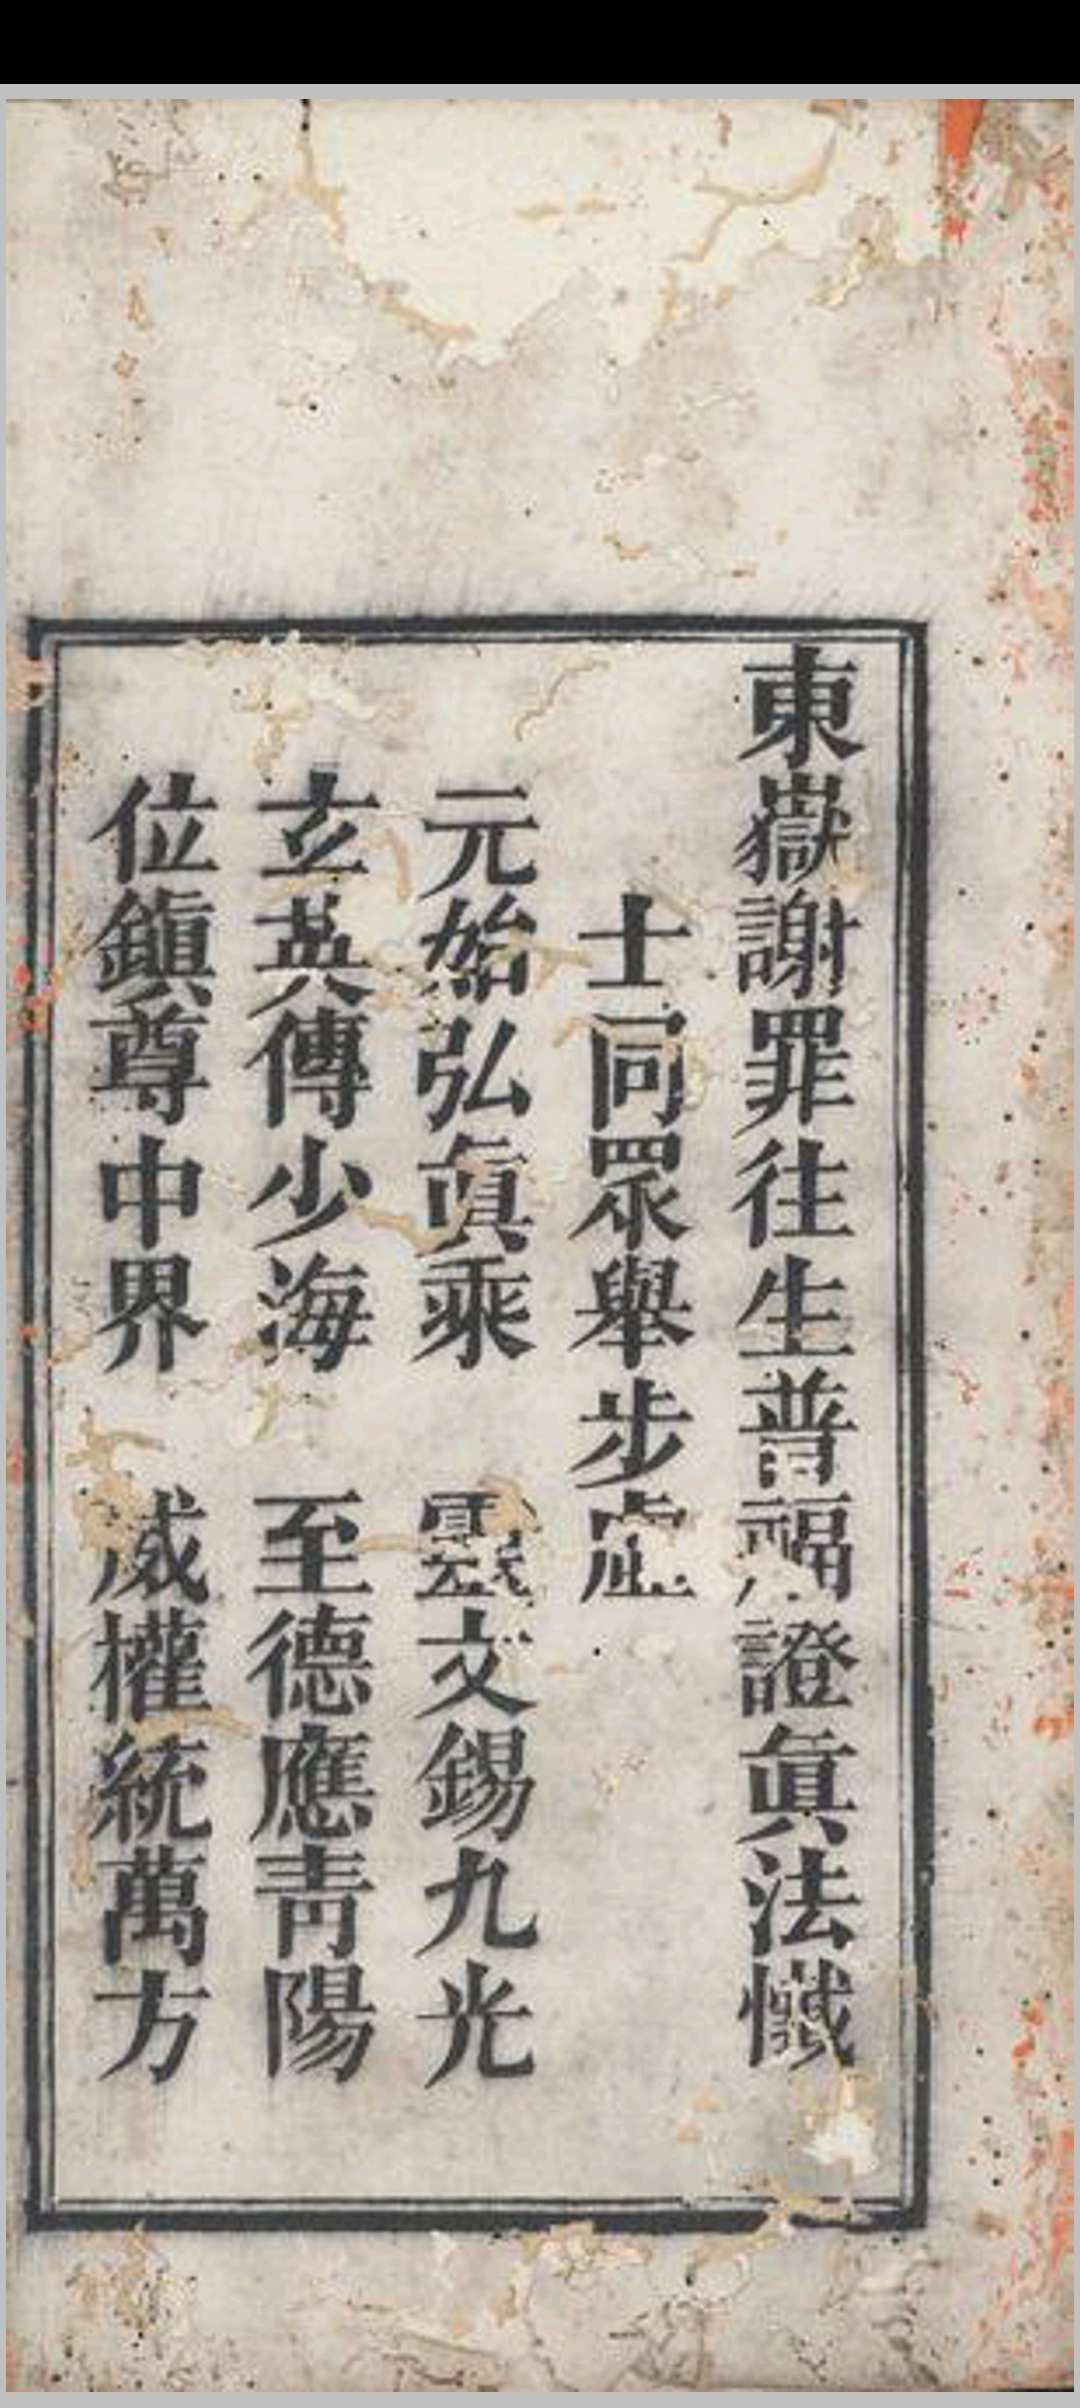 東嶽謝罪往生普福證眞法懺
士同眾舉步虛
元始弘眞乘　雲文錫九光
玄英傳少海　至德應靑陽
位鎭尊中界　威權統萬方